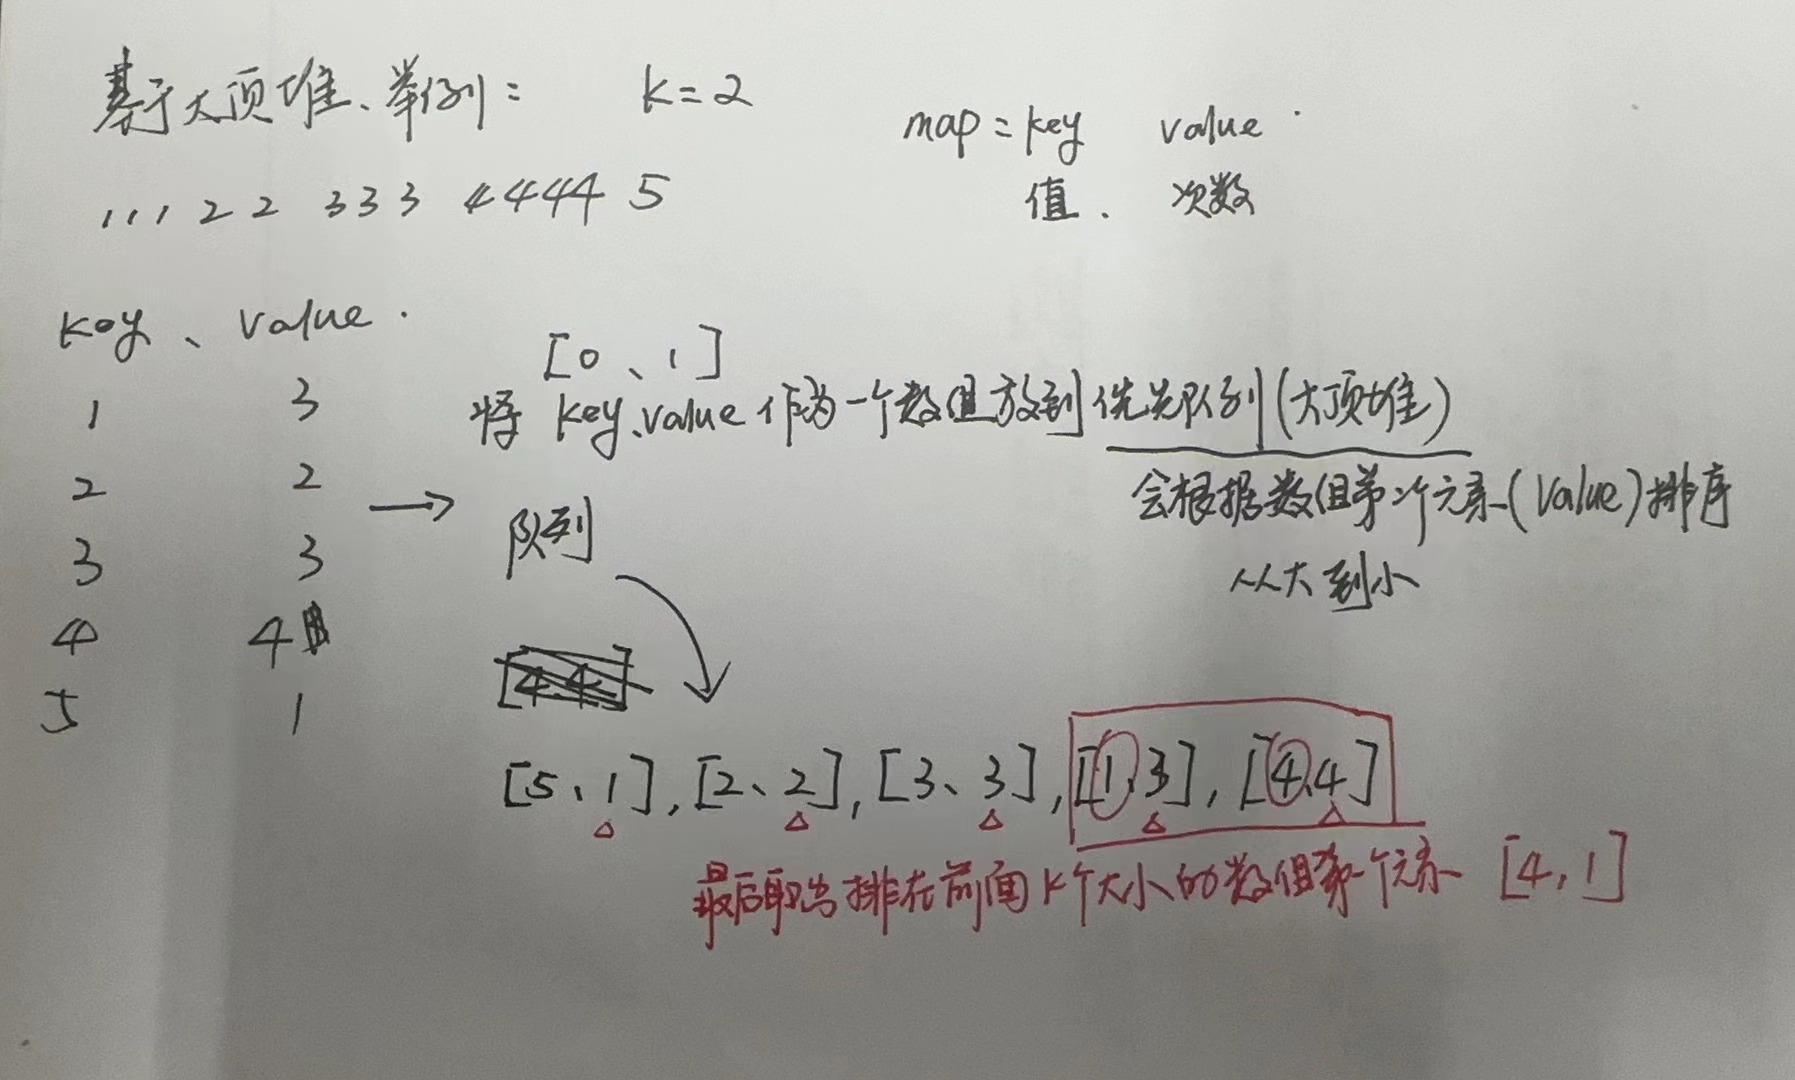 基于大顶堆、举例： k=2
map = key value
值. 次数
111 22 333 4444 5
key、value.
1 3
2 2
3 3
4 4
5 1
[0、1]
将 key、value 作为一个数组放到优先队列(大顶堆)
会根据数组第2个元素(value)排序
从大到小
队列
[5、1], [2、2], [3、3], [1、3], [4、4]
最后取出排在前面k个大小的数组第一个元素 [4,1]